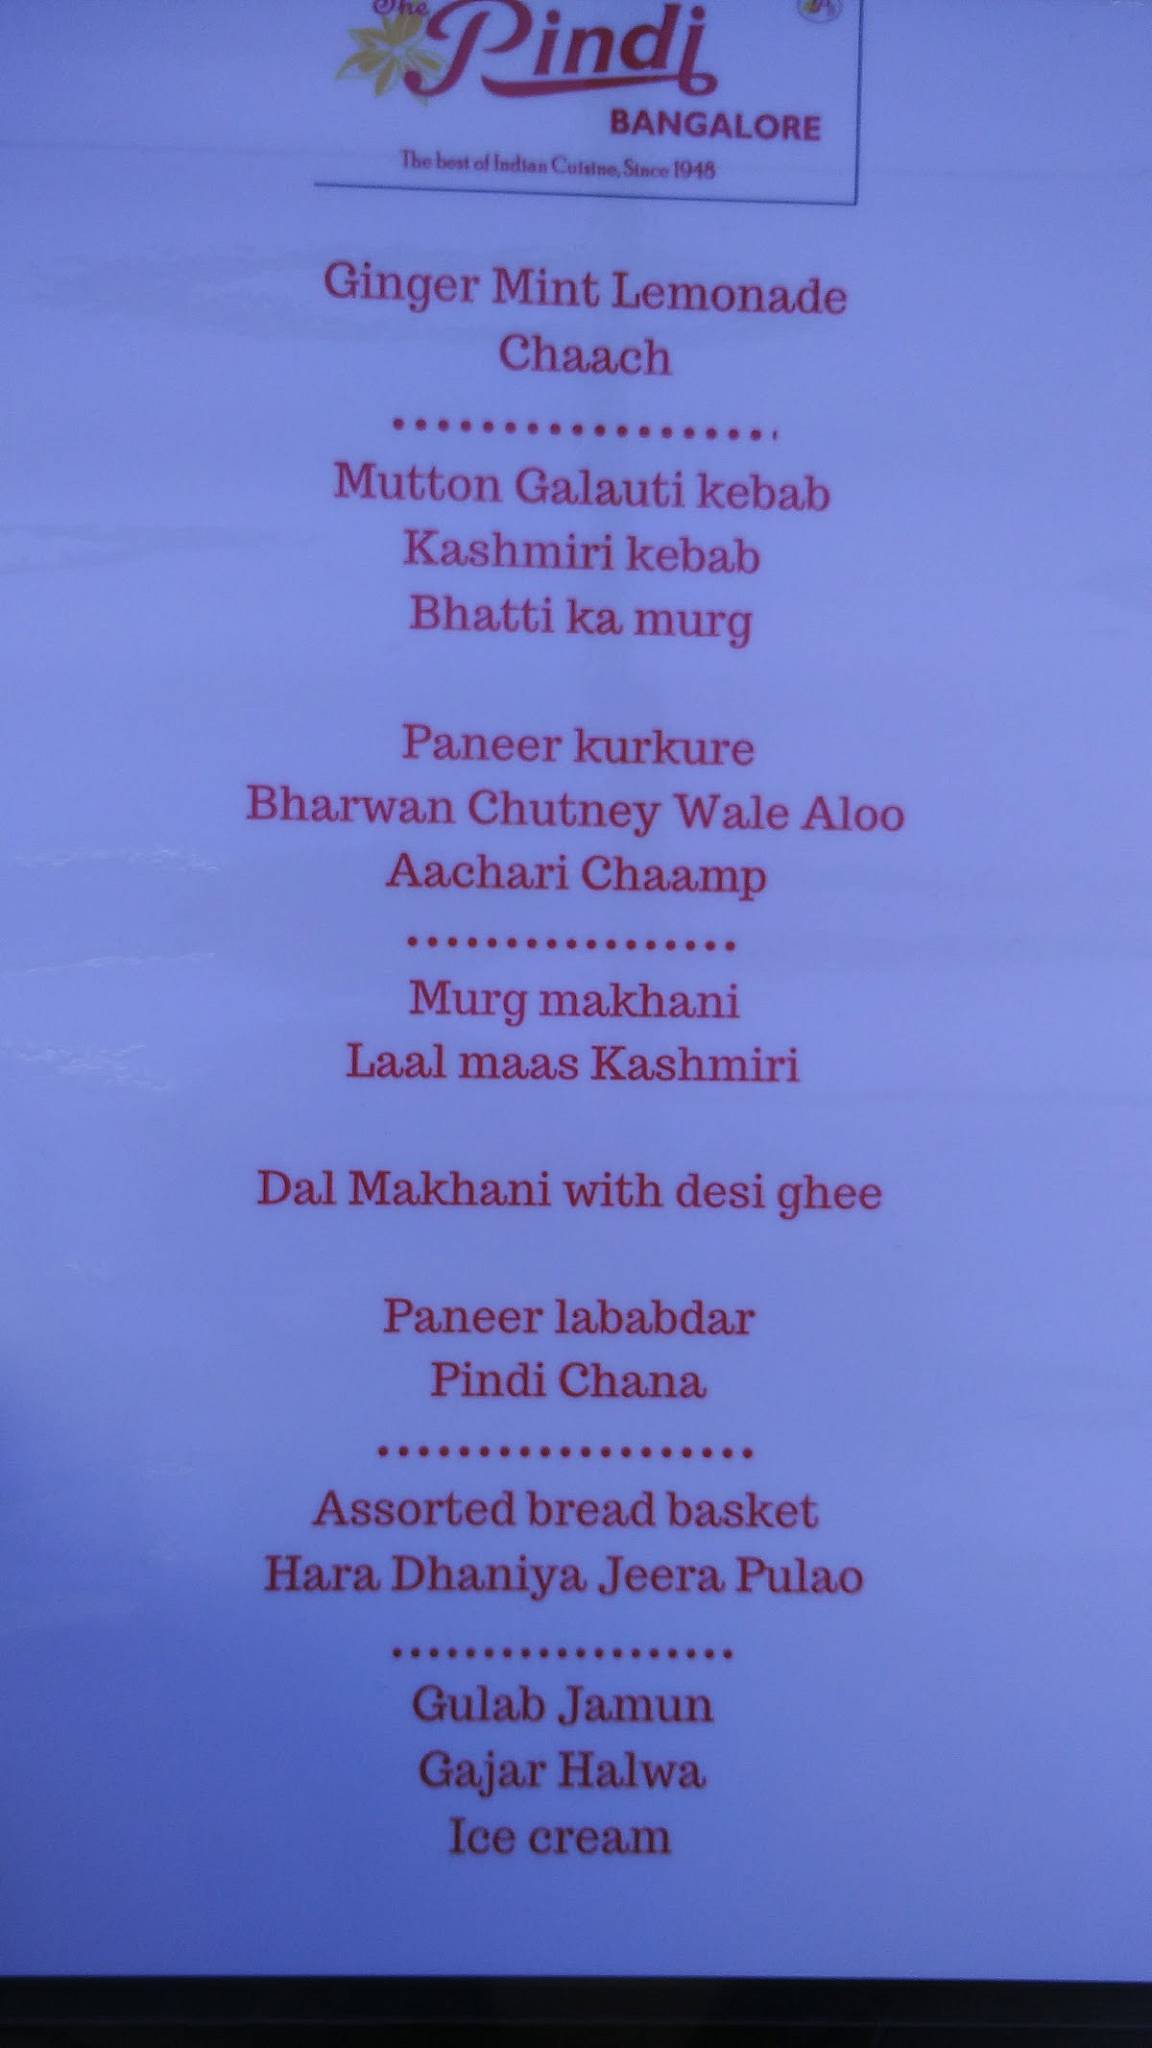 The
Pindi
BANGALORE
The best of Indian Cuisine, Since 1948
Ginger Mint Lemonade
Chaach
..................
Mutton Galauti kebab
Kashmiri kebab
Bhatti ka murg
Paneer kurkure
Bharwan Chutney Wale Aloo
Aachari Chaamp
.................
Murg makhani
Laal maas Kashmiri
Dal Makhani with desi ghee
Paneer lababdar
Pindi Chana
...................
Assorted bread basket
Hara Dhaniya Jeera Pulao
...................
Gulab Jamun
Gajar Halwa
Ice cream